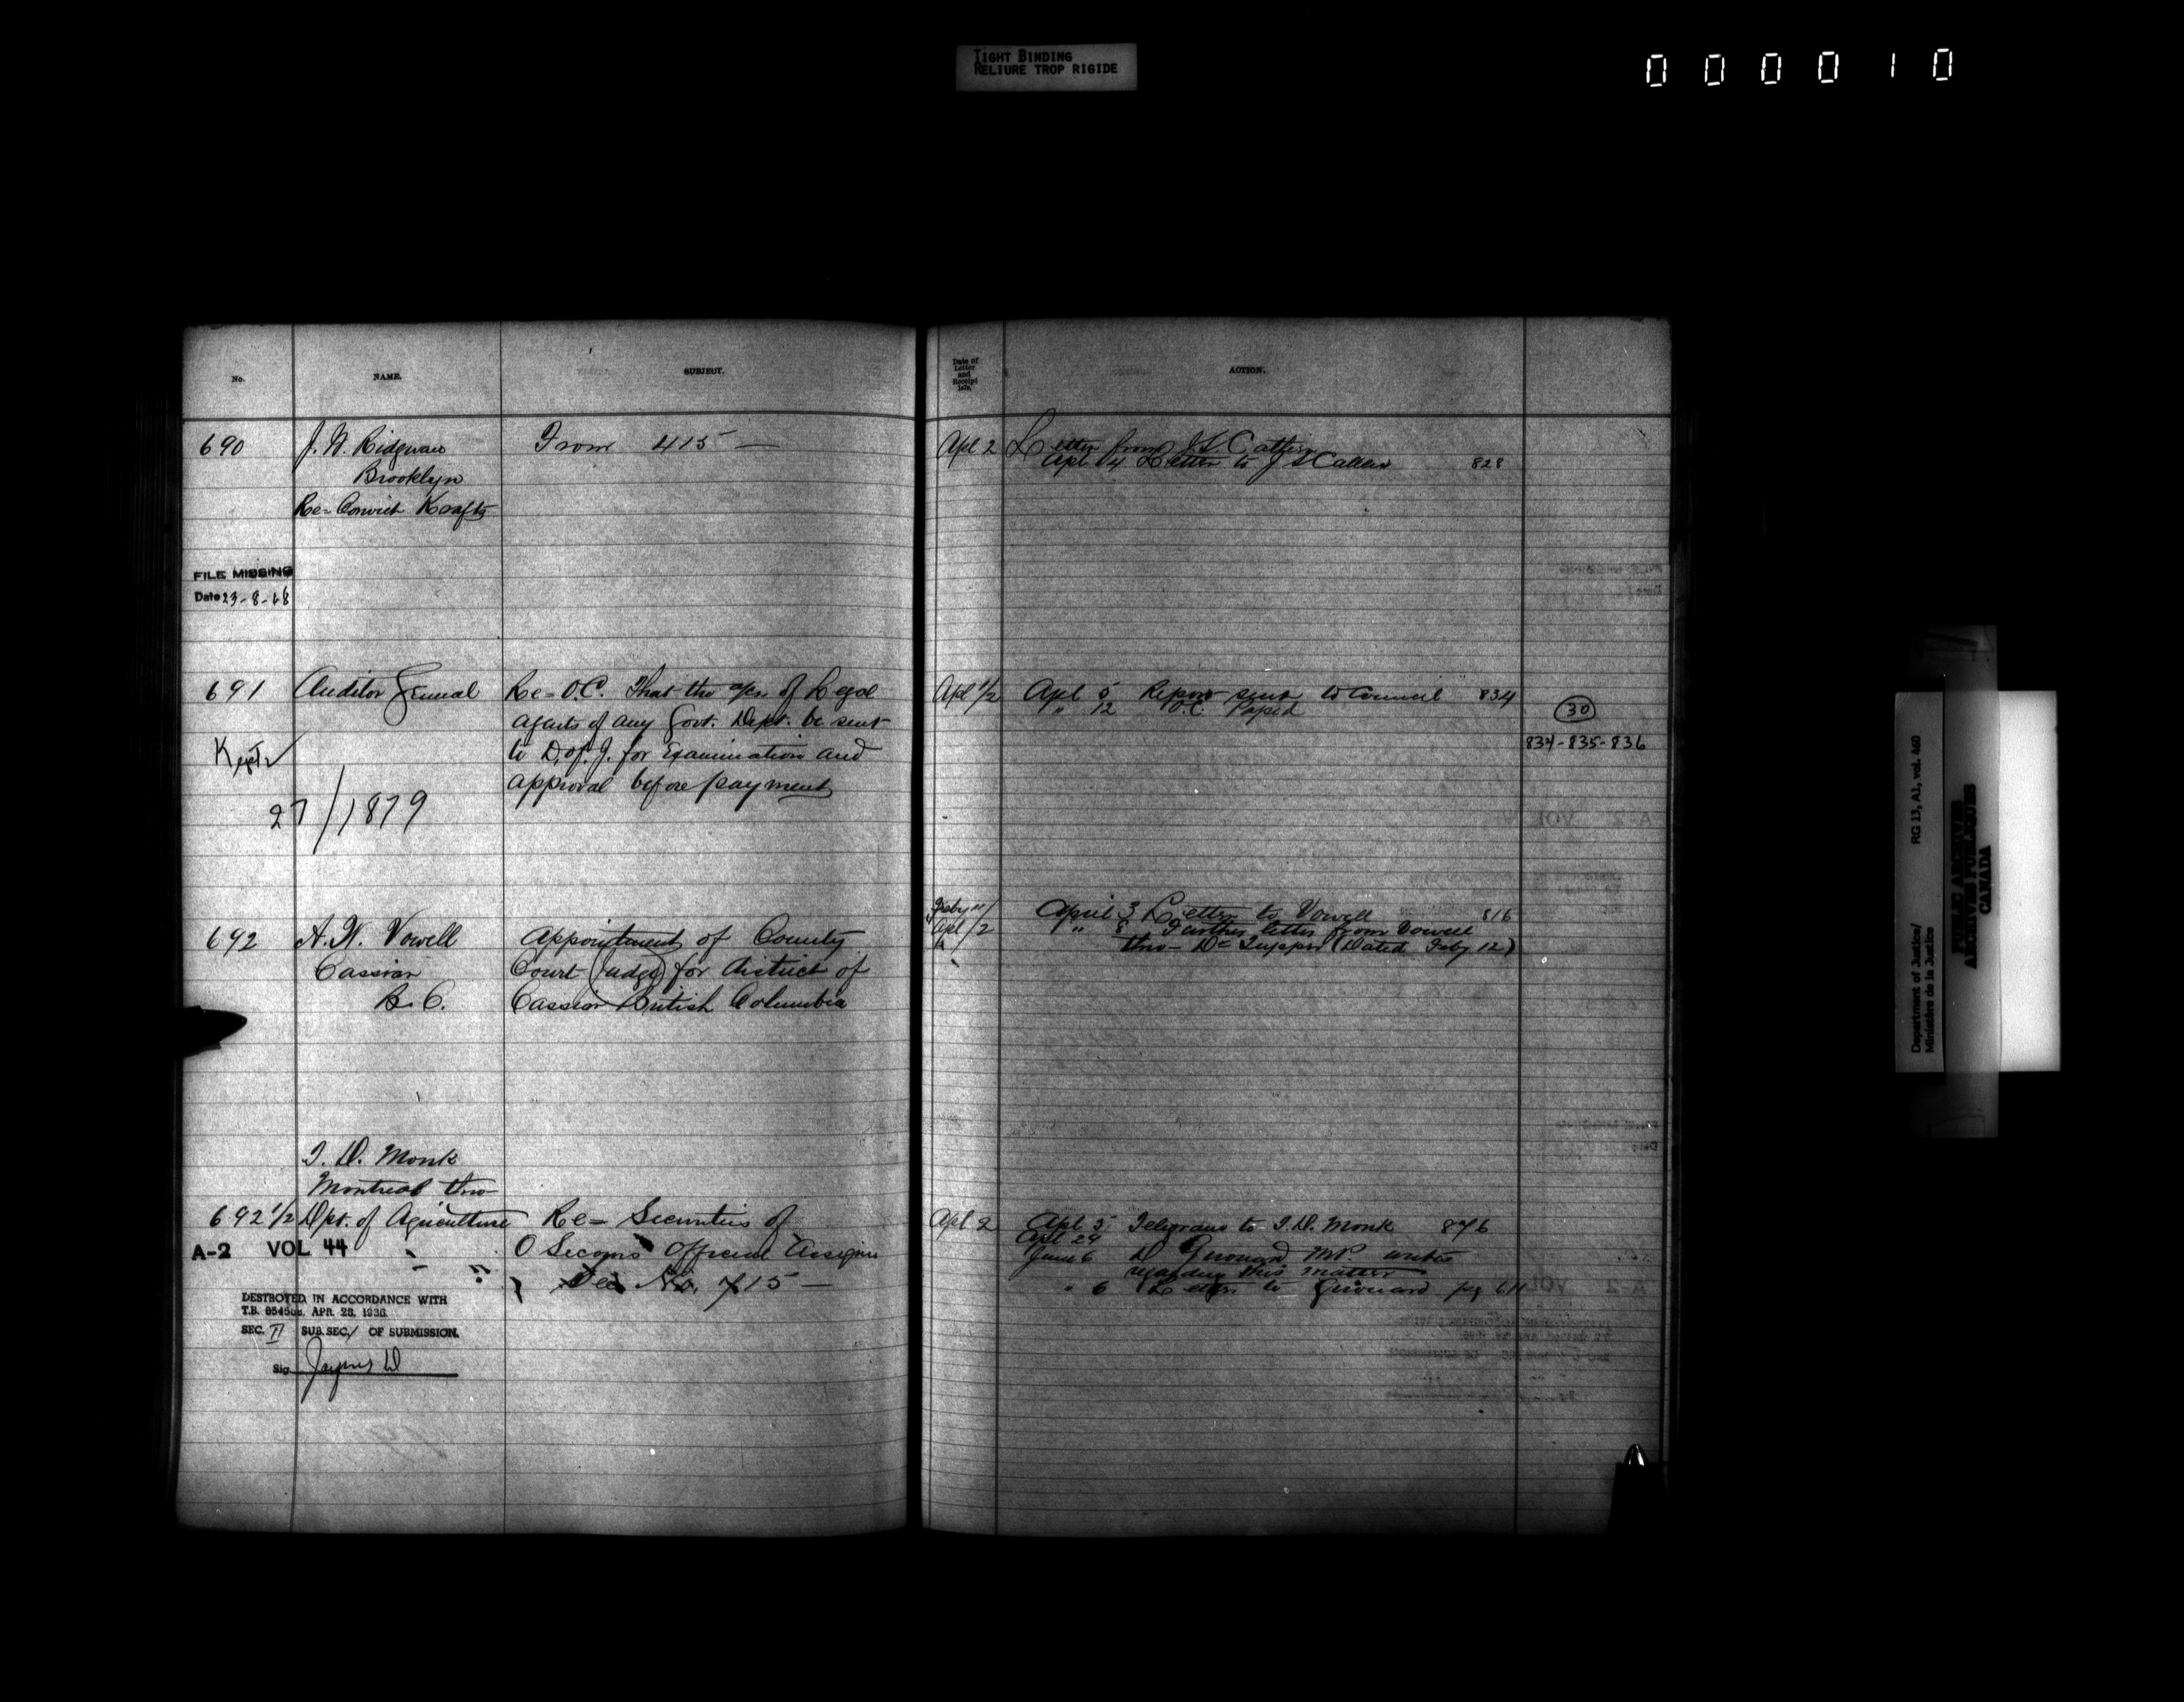 TIGHT BINDING
RELIURE TROP RIGIDE
000010
No.
NAME.
SUBJECT.
Date of
Letter
and
Receipt
ACTION.
690
J. W. Ridgway
Brooklyn
Re= Convict
From 415 —
Apl 2
Letter from J S
Apl 4 Letter to J S
828
FILE MISSING
Date 23-8-68
691
Auditor General
Re= O.C. That the a/cs of Legal
agents of any Govt. Dept. be sent
to D. of J. for Examination and
approval before payment
27/1879
Apl 1/2
Apl 5 Report sent to Council 834
" 12 O.C. Passed
30
834-835-836
692
A. W. Vowell
Cassiar
B. C.
Appointment of County
Court (Judge) for District of
Cassiar British Columbia
Feby
Apl /2
April 3 Letter to Vowell 816
" 8 Further letter from Vowell
thro- Dr Tupper (Dated Feby 12)
692 1/2
Monk
Montreal thro-
Dpt. of Agriculture
Re= Securities of
Official Assignee
See No. 715 —
A-2 VOL 44
DESTROYED IN ACCORDANCE WITH
T.B. APR. 28, 1936
SEC. II SUB. SEC. / OF SUBMISSION.
Sig.
Apl 2
Apl 5 Telegram to Monk 876
Apl 24
June 6 D Girouard M.P. writes
regarding this matter
" 6 Letter to Girouard pg 611
Department of Justice/
Ministère de la Justice
RG 13, A1, vol. 460
PUBLIC ARCHIVES
ARCHIVES PUBLIQUES
CANADA